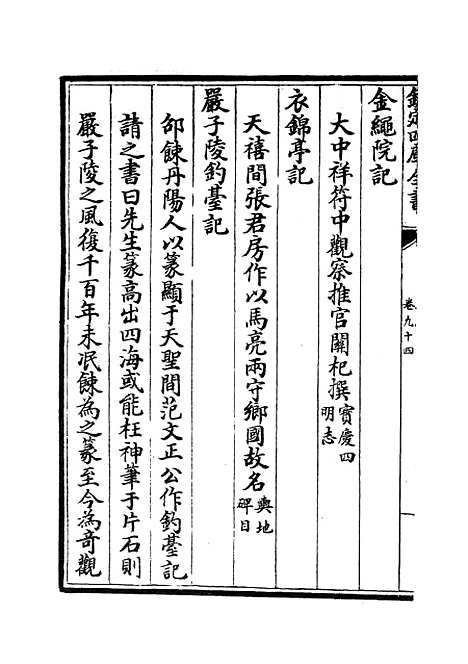 欽定四庫全書
卷九十四
金繩院記
大中祥符中觀察推官關杞撰寶慶四明志
衣錦亭記
天禧間張君房作以馬亮兩守鄉國故名輿地碑目
嚴子陵釣臺記
邵餗丹陽人以篆顯于天聖間范文正公作釣臺記
請之書曰先生篆高出四海或能枉神筆于片石則
嚴子陵之風復千百年未泯餗為之篆至今為奇觀